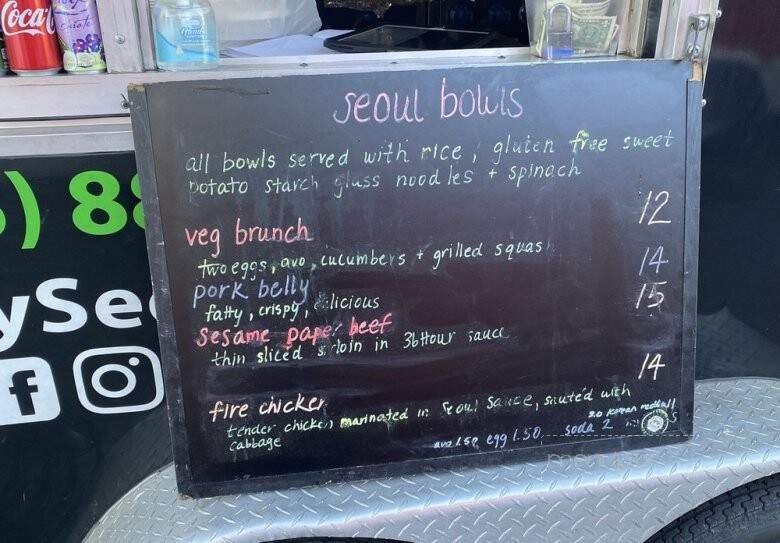 Coca
) 8
ySe
f
seoul bowls
all bowls served with rice, gluten free sweet
potato starch glass noodles + spinach
veg brunch 12
two eggs, avo, cucumbers + grilled squash
pork belly 14
fatty, crispy, delicious
sesame paper beef 15
thin sliced sirloin in 36Hour sauce
fire chicken 14
tender chicken marinated in Seoul Sauce, sautéd with
cabbage
avo 1.50 egg 1.50 soda 2